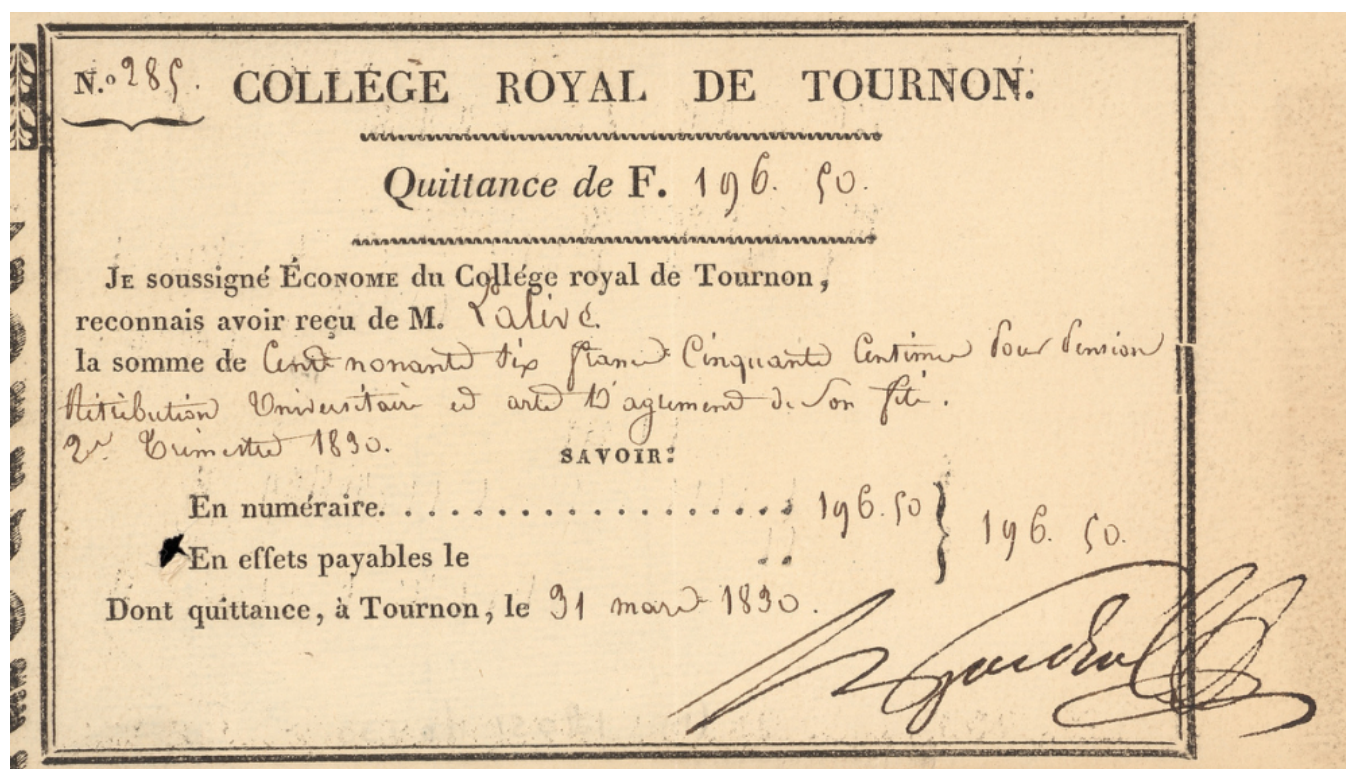 N.º 285.
COLLÉGE ROYAL DE TOURNON.
Quittance de F. 196. 50.
JE soussigné ÉCONOME du Collége royal de Tournon,
reconnais avoir reçu de M.
la somme de Cent nonante six francs Cinquante Centimes pour pension
Rétribution Universitaire et arts D'agrément de son fils.
2e Trimestre 1830.
SAVOIR:
En numéraire. . . . . . . . . . . . . . . . . . . 196.50 } 196. 50.
En effets payables le . .
Dont quittance, à Tournon, le 31 mars 1830.